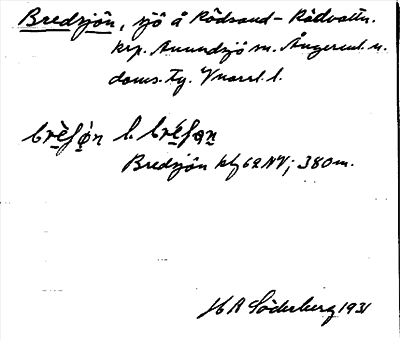 Bredsjön, sjö å Rödsand - Rödvattn.
krp. Anundsjö sn. Ångerml. n.
doms. Tg. Vnorrl. l.
brèsø̀n l. brésøn
Bredsjön kbl 62 NV; 380 m.
H A Söderberg 1931